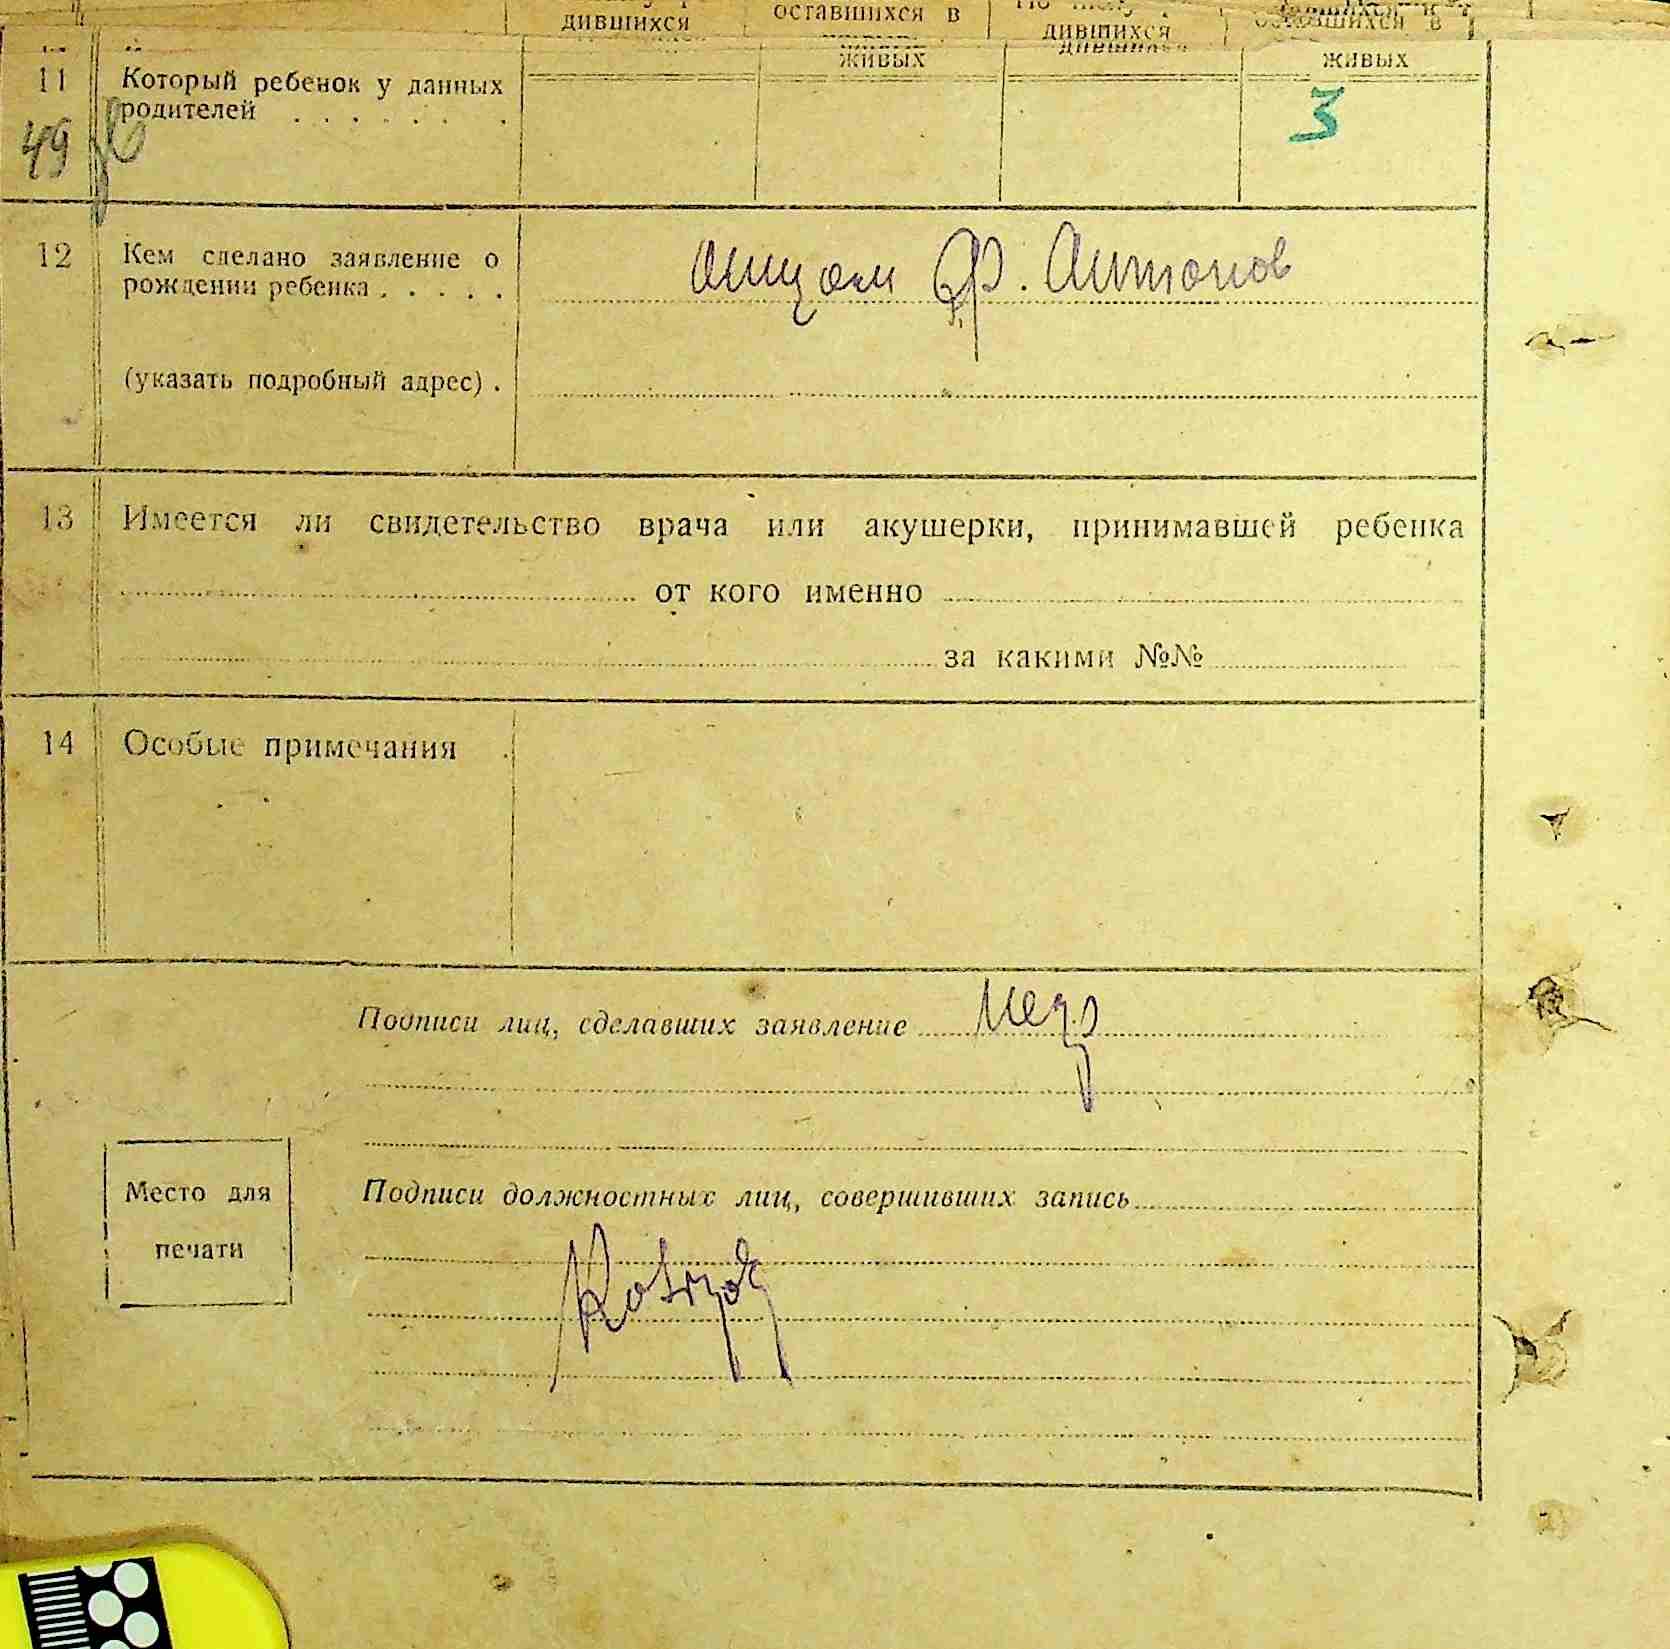 дившихся оставшихся в дившихся оставшихся в
живых живых
11 Который ребенок у данных
родителей . . . . . . . 3
49
12 Кем сделано заявление о
рождении ребенка . . . . . отцом Ф. Антонов
(указать подробный адрес) .
13 Имеется ли свидетельство врача или акушерки, принимавшей ребенка
от кого именно
за какими №№
14 Особые примечания .
Подписи лиц, сделавших заявление
Место для
печати
Подписи должностных лиц, совершивших запись